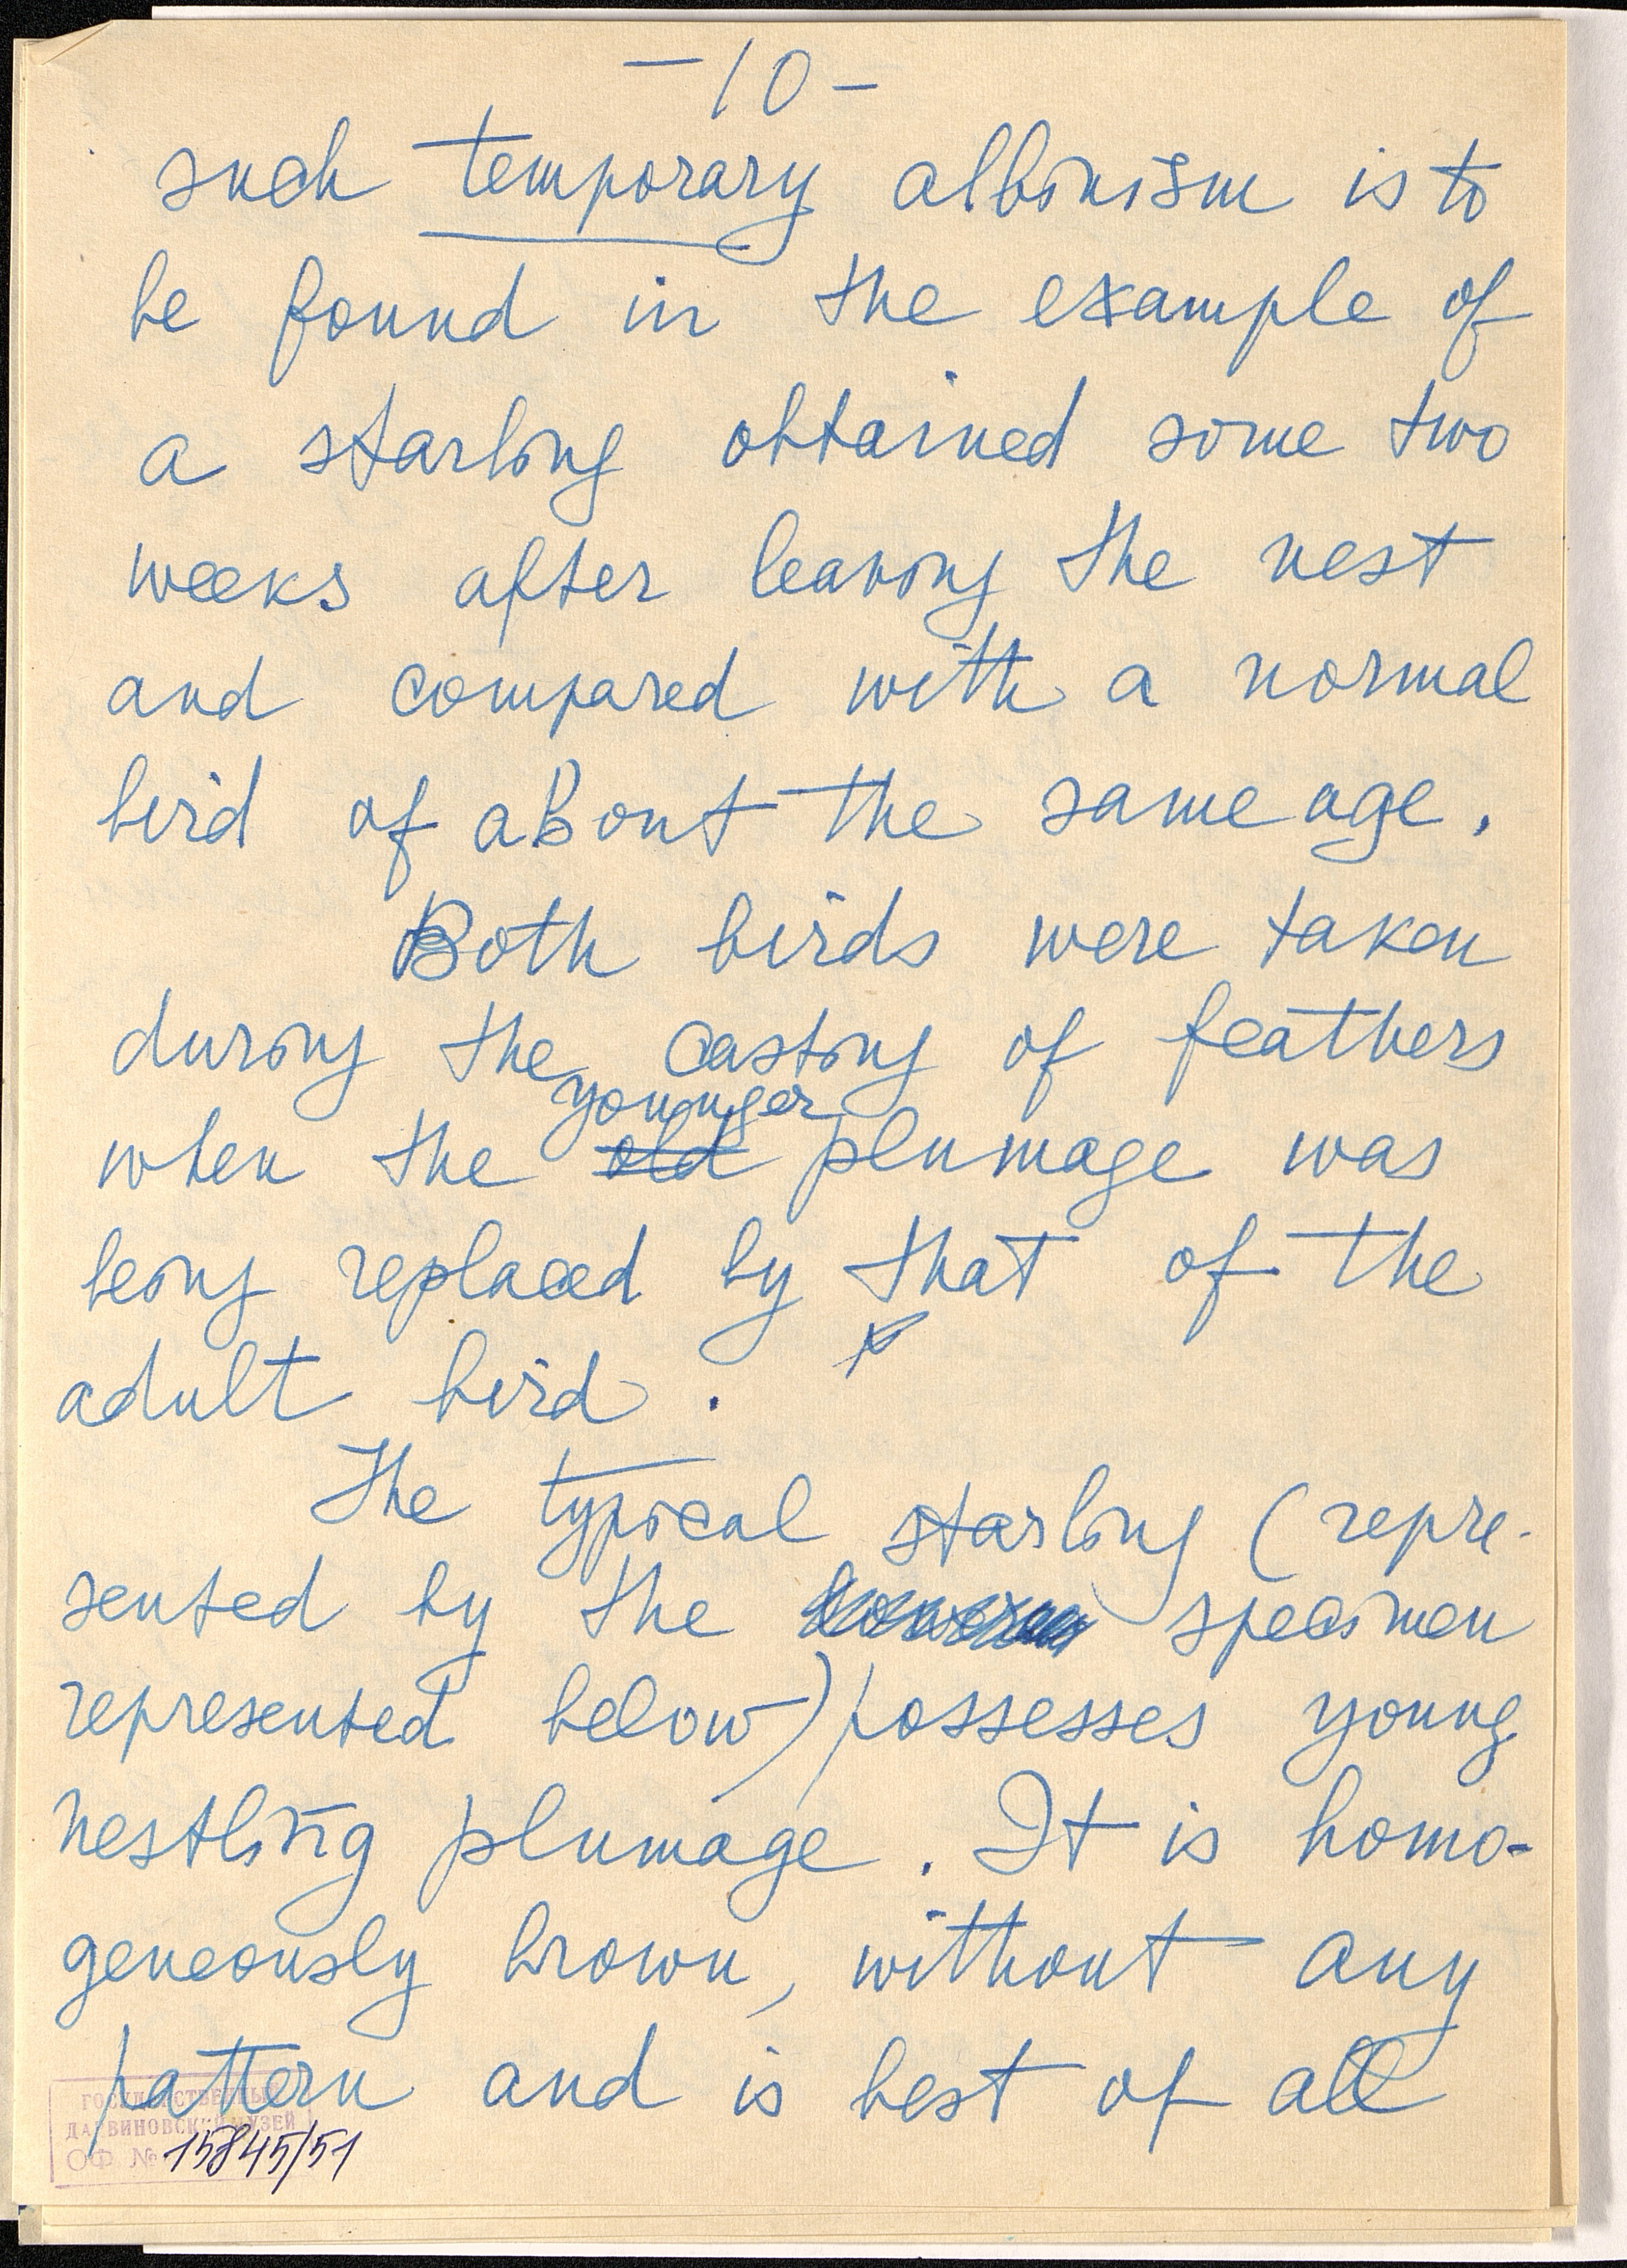 -10-
such temporary albinism is to
be found in the example of
a starling obtained some two
weeks after leaving the nest
and compared with a normal
bird of about the same age.
Both birds were taken
during the casting of feathers
younger
when the old plumage was
being replaced by that of the
adult bird.
The typical starling (repre-
sented by the specimen
represented below) possesses young
nestling plumage. It is homo-
geneously brown, without any
pattern and is best of all
ГОСУДАРСТВЕННЫЙ
ДАРВИНОВСКИЙ МУЗЕЙ
ОФ № 15845/51